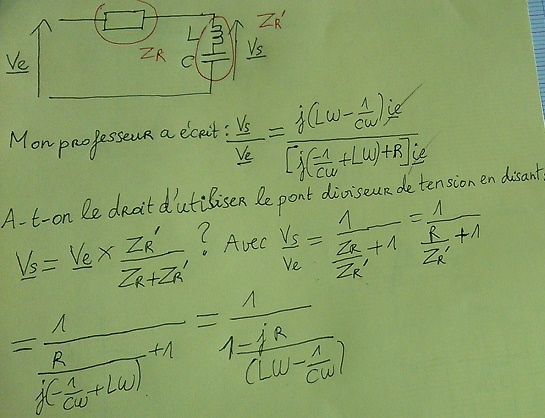 ZR'
L
C
Ve
ZR
Vs
Mon professeur a écrit : Vs/Ve = j(Lω - 1/Cω) ie / [j(-1/Cω + Lω) + R] ie
A-t-on le droit d'utiliser le pont diviseur de tension en disant:
Vs = Ve × ZR'/(ZR+ZR') ? Avec Vs/Ve = 1/(ZR/ZR' + 1) = 1/(R/ZR' + 1)
= 1/(R/(j(-1/Cω + Lω)) + 1) = 1/(1 - jR/(Lω - 1/Cω))